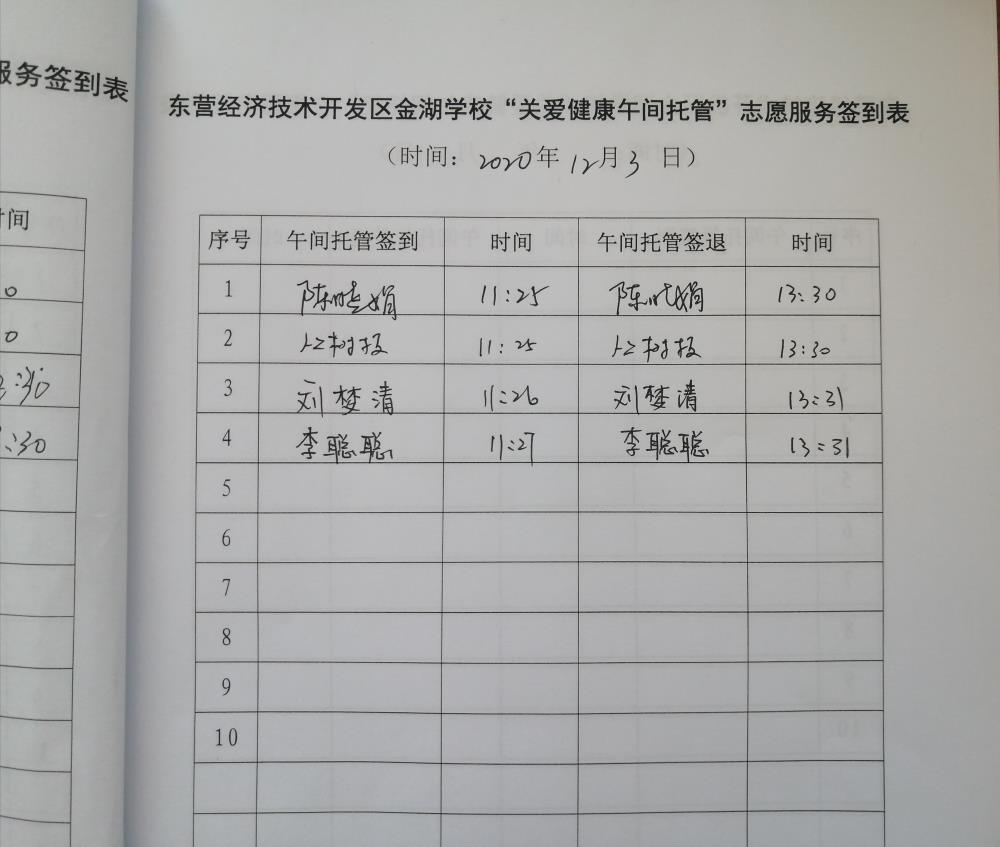 服务签到表
时间
0
0
:30
:30
东营经济技术开发区金湖学校“关爱健康午间托管”志愿服务签到表
（时间：2020年12月3日）
序号 午间托管签到 时间 午间托管签退 时间
1 陈晓娟 11:25 陈晓娟 13:30
2 11:25 13:30
3 刘梦清 11:26 刘梦清 13:31
4 李聪聪 11:27 李聪聪 13:31
5
6
7
8
9
10